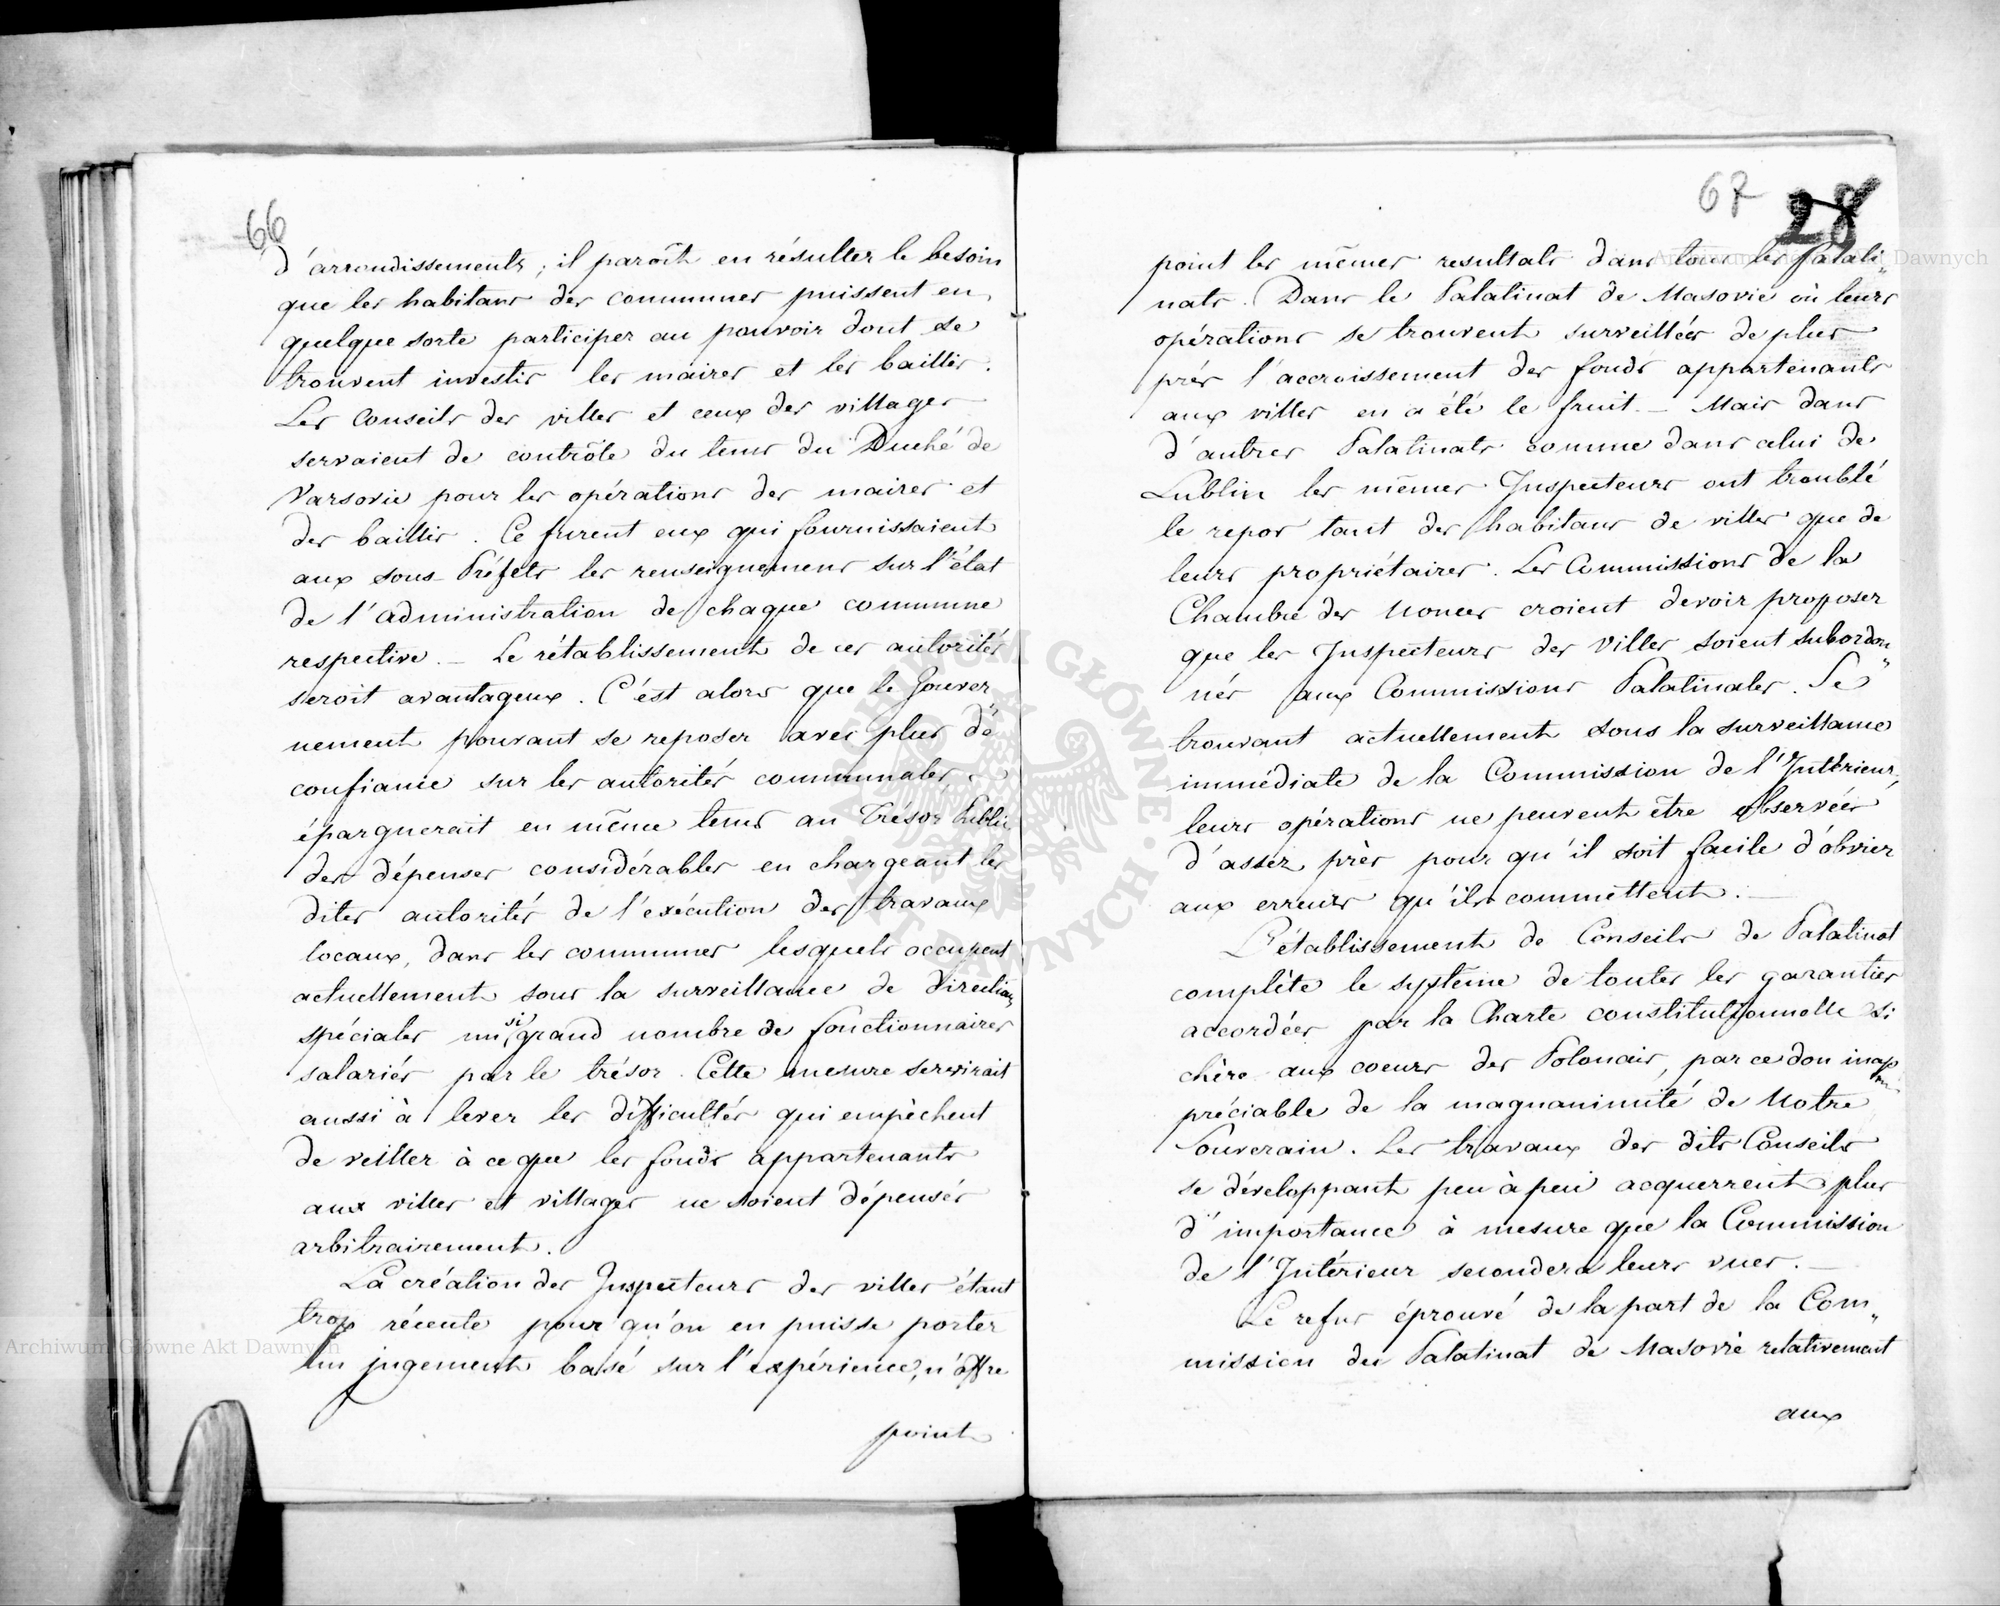 66
d'arrondissements; il paroît en résulter le besoin
que les habitans des communes puissent en
quelque sorte participer au pouvoir dont se
trouvent investis les maires et les baillis.
Les Conseils des villes et ceux des villages
servaient de contrôle du tems du Duché de
Varsovie pour les opérations des maires et
des baillis. Ce furent eux qui fournissaient
aux sous-Préfets les renseignemens sur l'état
de l'administration de chaque commune
respective. — Le rétablissement de ces autorités
seroit avantageux. C'est alors que le Gouver„
nement pouvant se reposer avec plus de
confiance sur les autorités communales
épargnerait en même tems au Trésor Public
des dépenses considérables en chargeant les
dites autorités de l'exécution des travaux
locaux, dans les communes lesquels occupent
actuellement sous la surveillance de Directions
spéciales un si grand nombre de fonctionnaires
salariés par le trésor. Cette mesure servirait
aussi à lever les difficultés qui empêchent
de veiller à ce que les fonds appartenants
aux villes et villages ne soient dépensés
arbitrairement.
La création des Inspecteurs des villes étant
trop récente pour qu'on en puisse porter
un jugement basé sur l'expérience, n'offre
point
67 28
point les mêmes resultats dans tous les Palati„
nats. Dans le Palatinat de Masovie où leurs
opérations se trouvent surveillées de plus
près l'accroissement des fonds appartenants
aux villes en a été le fruit. — Mais dans
d'autres Palatinats comme dans celui de
Lublin les mêmes Inspecteurs ont troublé
le repos tant des habitans de villes que de
leurs propriétaires. Les Commissions de la
Chambre des Nonces croient devoir proposer
que les Inspecteurs des Villes soient subordon„
nés aux Commissions Palatinales. Se
trouvant actuellement sous la surveillance
immédiate de la Commission de l'Intérieur,
leurs opérations ne peuvent être observées
d'assez près pour qu'il soit facile d'obvier
aux erreurs qu'ils commettent. —
L'établissement de Conseils de Palatinat
complète le système de toutes les garanties
accordées par la Charte constitutionnelle si
chère aux coeurs des Polonais, par ce don inap
préciable de la magnanimité de Notre
Souverain. Les travaux des dits Conseils
se développant peu à peu acquerrent plus
d'importance à mesure que la Commission
de l'Intérieur secondera leurs vues. —
Le refus éprouvé de la part de la Com„
mission du Palatinat de Masovie relativement
aux
Archiwum Główne Akt Dawnych
Archiwum Główne Akt Dawnych
ARCHIWUM GŁÓWNE AKT DAWNYCH